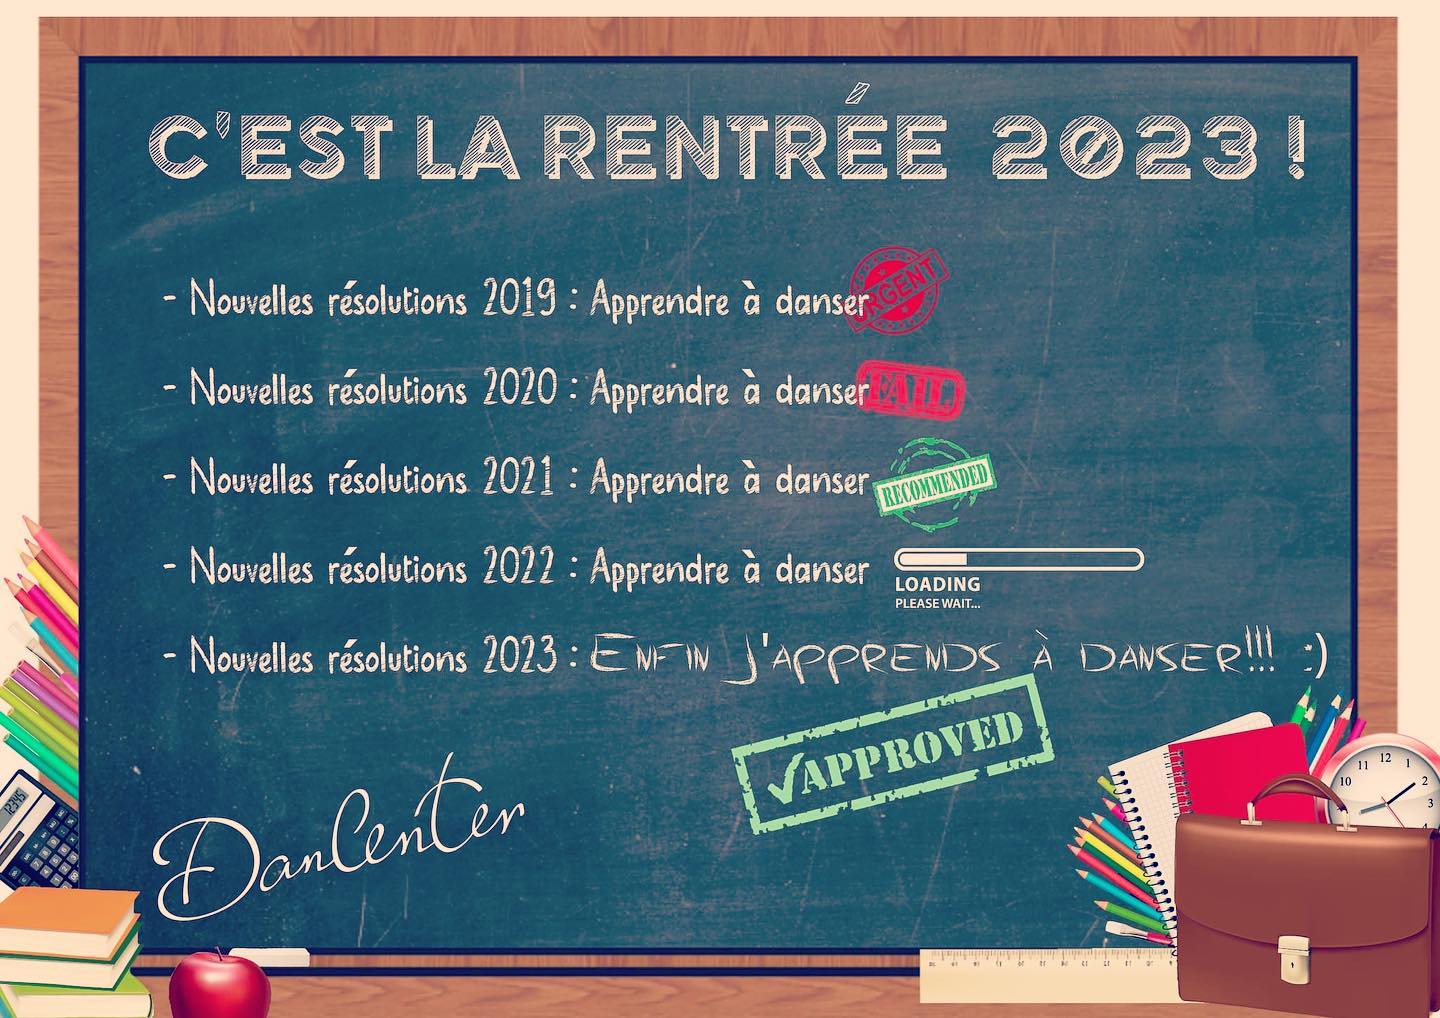 C'EST LA RENTRÉE 2023 !
- Nouvelles résolutions 2019 : Apprendre à danser URGENT
- Nouvelles résolutions 2020 : Apprendre à danser FAIL
- Nouvelles résolutions 2021 : Apprendre à danser RECOMMENDED
- Nouvelles résolutions 2022 : Apprendre à danser
LOADING
PLEASE WAIT...
- Nouvelles résolutions 2023 : ENFIN J'APPRENDS À DANSER!!! :)
✓APPROVED
DanCenter
12345
11 12 1
10 2
3